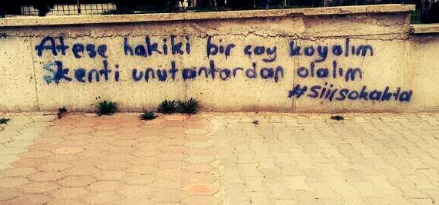 Ateşe hakiki bir çay koyalım
kenti unutanlardan olalım
#Şiirsokakta